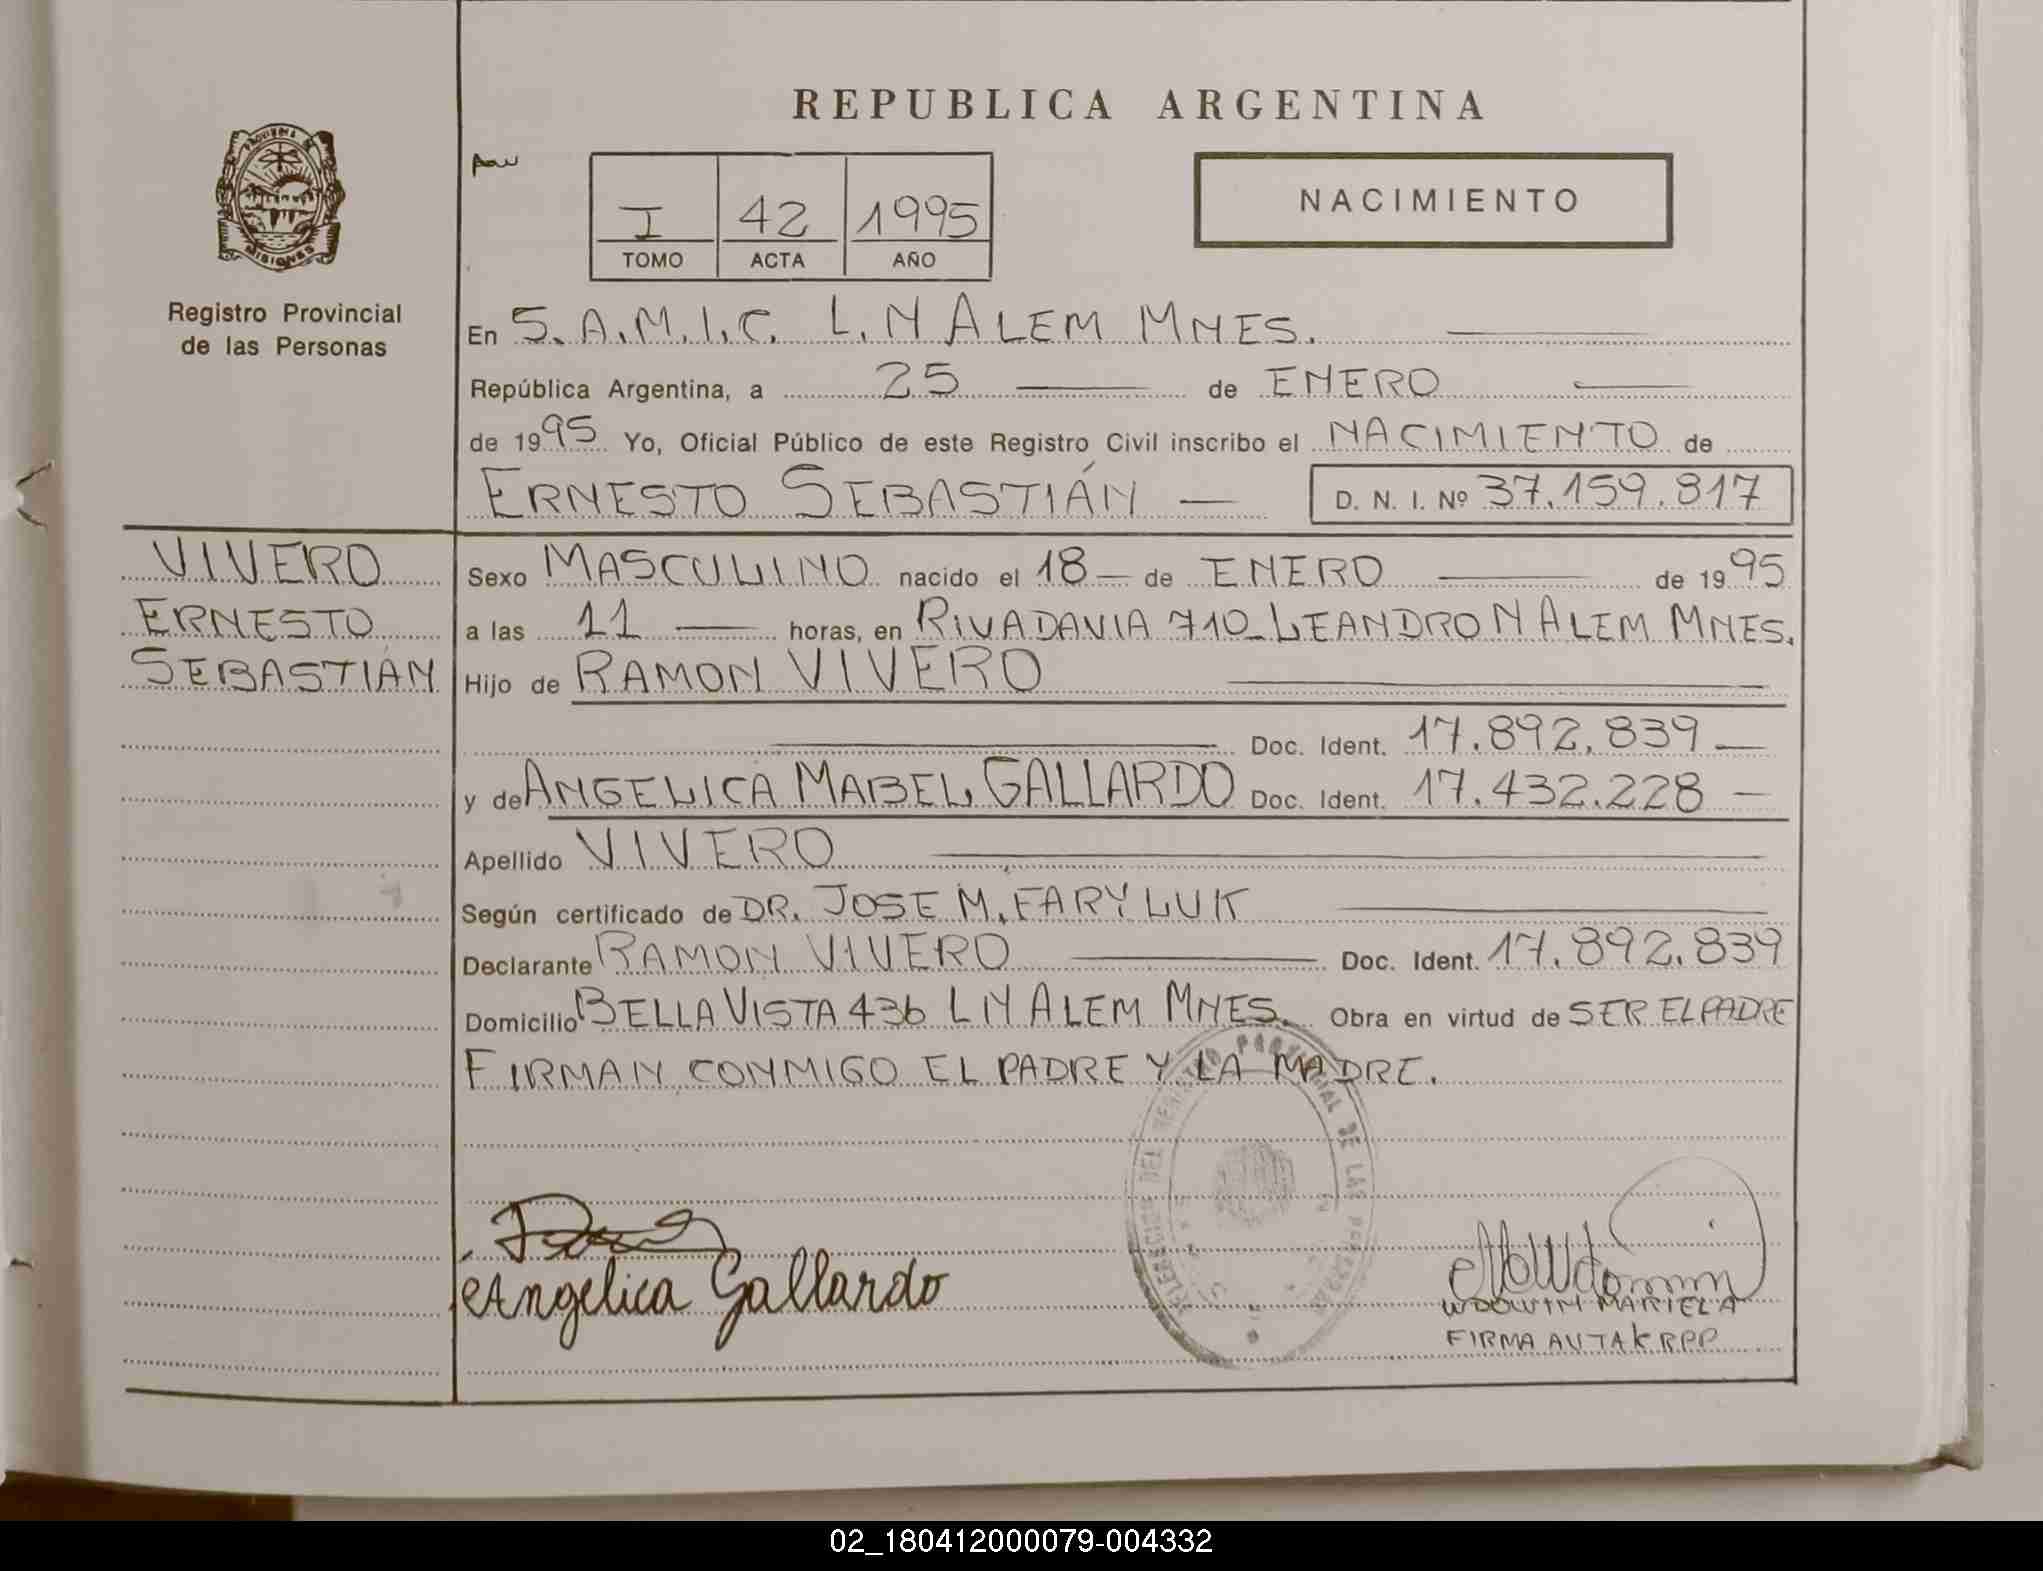 REPUBLICA ARGENTINA
PROVINCIA DE
MISIONES
Registro Provincial
de las Personas
I 42 1995
TOMO ACTA AÑO
NACIMIENTO
En S.A.M.I.C. L.N ALEM MNES.
República Argentina, a 25 de ENERO
de 1995 Yo, Oficial Público de este Registro Civil inscribo el NACIMIENTO de
ERNESTO SEBASTIÁN — D. N. I. Nº 37.159.817
VIVERO
ERNESTO
SEBASTIÁN
Sexo MASCULINO nacido el 18 — de ENERO de 1995
a las 11 — horas, en RIVADAVIA 710_LEANDRO N ALEM MNES.
Hijo de RAMON VIVERO
Doc. Ident. 17.892.839 —
y de ANGELICA MABEL GALLARDO Doc. Ident. 17.432.228 —
Apellido VIVERO
Según certificado de DR. JOSE M. FARYLUK
Declarante RAMON VIVERO Doc. Ident. 17.892.839
Domicilio BELLA VISTA 436 LN ALEM MNES. Obra en virtud de SER EL PADRE
FIRMAN CONMIGO EL PADRE Y LA MADRE.
Angelica Gallardo
WDOWIN MARIELA
FIRMA AUTAK RPP
02_180412000079-004332